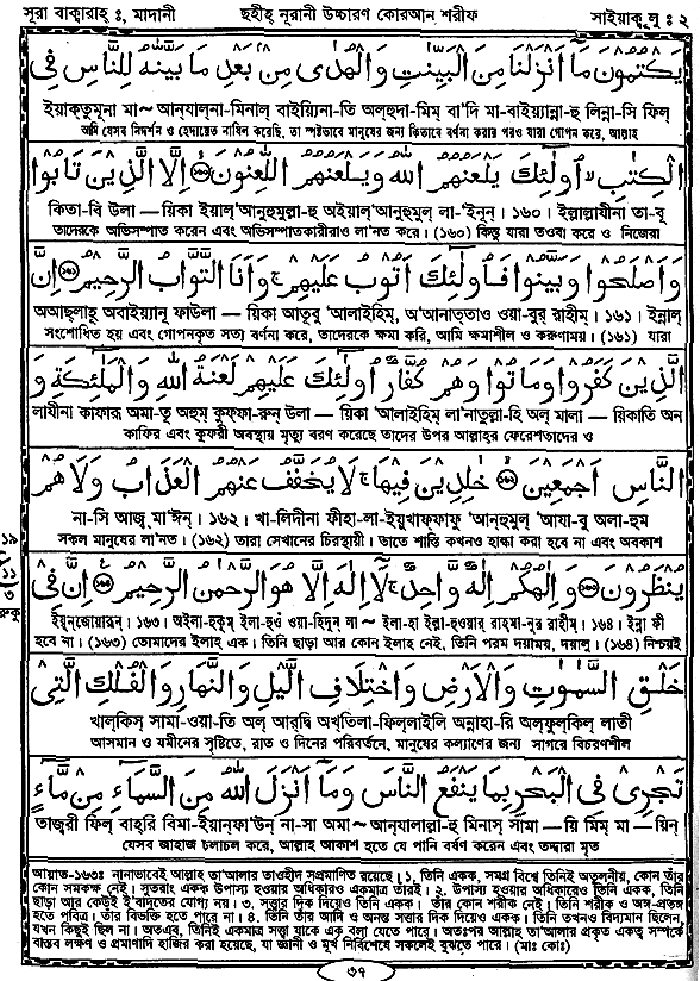 সূরা বাক্বারাহ্ ঃ, মাদানী ছহীহ্ নূরানী উচ্চারণ কোরআন শরীফ সাইয়াকূলু ঃ ২
يَكْتُمُونَ مَآ اَنْزَلْنَا مِنَ الْبَيِّنٰتِ وَالْهُدٰى مِنْۢ بَعْدِ مَا بَيَّنّٰهُ لِلنَّاسِ فِى
ইয়াক্তুমূনা মা~ আন্‌যাল্‌না-মিনাল্ বাইয়্যিনা-তি অল্‌হুদা-মিম্ বা'দি মা-বাইয়্যান্না-হু লিন্না-সি ফিল্
আমি যেসব নিদর্শন ও হেদায়েত নাযিল করেছি, তা স্পষ্টভাবে মানুষের জন্য কিতাবে বর্ণনা করার পরও যারা গোপন করে, আল্লাহ
الْكِتٰبِ ۙ اُولٰٓئِكَ يَلْعَنُهُمُ اللّٰهُ وَيَلْعَنُهُمُ اللّٰعِنُوْنَ ۝ اِلَّا الَّذِيْنَ تَابُوْا
কিতা-বি উলা — য়িকা ইয়াল্'আনুহুমুল্লা-হু অইয়াল্'আনুহুমুল্ লা-'ইনূন্। ১৬০। ইল্লাল্লাযীনা তা-বূ
তাদেরকে অভিসম্পাত করেন এবং অভিসম্পাতকারীরাও লা'নত করে। (১৬০) কিন্তু যারা তওবা করে ও নিজেরা
وَاَصْلَحُوْا وَبَيَّنُوْا فَاُولٰٓئِكَ اَتُوْبُ عَلَيْهِمْ ۚ وَاَنَا التَّوَّابُ الرَّحِيْمُ ۝ اِنَّ
অআছ্‌লাহূ অবাইয়্যানূ ফাউলা — য়িকা আতূবু 'আলাইহিম্, অ'আনাত্তাও ওয়া-বুর্ রাহীম্। ১৬১। ইন্নাল্
সংশোধিত হয় এবং গোপনকৃত সত্য বর্ণনা করে, তাদেরকে ক্ষমা করি, আমি ক্ষমাশীল ও করুণাময়। (১৬১) যারা
الَّذِيْنَ كَفَرُوْا وَمَاتُوْا وَهُمْ كُفَّارٌ اُولٰٓئِكَ عَلَيْهِمْ لَعْنَةُ اللّٰهِ وَالْمَلٰٓئِكَةِ وَ
লাযীনা কাফারূ অমা-তূ অহুম্ কুফ্‌ফা-রুন্ উলা — য়িকা 'আলাইহিম্ লা'নাতুল্লা-হি অল্ মালা — য়িকাতি অন্
কাফির এবং কুফরী অবস্থায় মৃত্যু বরণ করেছে তাদের উপর আল্লাহর ফেরেশতাদের ও
النَّاسِ اَجْمَعِيْنَ ۝ خٰلِدِيْنَ فِيْهَا ۚ لَا يُخَفَّفُ عَنْهُمُ الْعَذَابُ وَلَا هُمْ
না-সি আজ্‌মা'ঈন্। ১৬২। খা-লিদীনা ফীহা-লা-ইয়ুখাফ্‌ফাফু 'আন্‌হুমুল্ 'আযা-বু অলা-হুম
সকল মানুষের লা'নত। (১৬২) তারা সেখানের চিরস্থায়ী। তাতে শাস্তি কখনও হাল্কা করা হবে না এবং অবকাশ
১৯
১১
৩
রুকূ
يُنْظَرُوْنَ ۝ وَاِلٰهُكُمْ اِلٰهٌ وَّاحِدٌ ۚ لَآ اِلٰهَ اِلَّا هُوَ الرَّحْمٰنُ الرَّحِيْمُ ۝ اِنَّ فِىْ
ইয়ুন্‌জোয়ারূন্। ১৬৩। অইলা-হুকুম্ ইলা-হুও ওয়া-হিদুন্ লা ~ ইলা-হা ইল্লা-হুওয়ার্ রাহ্‌মা-নুর্ রাহীম্। ১৬৪। ইন্না ফী
হবে না। (১৬৩) তোমাদের ইলাহ্ এক। তিনি ছাড়া আর কোন ইলাহ নেই, তিনি পরম দয়াময়, দয়ালু। (১৬৪) নিশ্চয়ই
خَلْقِ السَّمٰوٰتِ وَالْاَرْضِ وَاخْتِلَافِ الَّيْلِ وَالنَّهَارِ وَالْفُلْكِ الَّتِىْ
খাল্‌কিস্ সামা-ওয়া-তি অল্ আর্‌দ্বি অখ্‌তিলা-ফিল্লাইলি অন্নাহা-রি অল্‌ফুল্‌কিল্ লাতী
আসমান ও যমীনের সৃষ্টিতে, রাত ও দিনের পরিবর্তনে, মানুষের কল্যাণের জন্য সাগরে বিচরণশীল
تَجْرِىْ فِى الْبَحْرِ بِمَا يَنْفَعُ النَّاسَ وَمَآ اَنْزَلَ اللّٰهُ مِنَ السَّمَآءِ مِنْ مَّآءٍ
তাজ্‌রী ফিল্ বাহ্‌রি বিমা-ইয়ান্‌ফা'উন্ না-সা অমা ~ আন্‌যালাল্লা-হু মিনাস্ সামা — য়ি মিম্ মা — য়িন্
যেসব জাহাজ চলাচল করে, আল্লাহ আকাশ হতে যে পানি বর্ষণ করেন এবং তদ্দারা মৃত
আয়াত-১৬৩ঃ নানাভাবেই আল্লাহ তা'আলার তাওহীদ সপ্রমাণিত রয়েছে। ১. তিনি একক, সমগ্র বিশ্বে তিনিই অতুলনীয়, কোন তাঁর
কোন সমকক্ষ নেই। সুতরাং একক উপাস্য হওয়ার অধিকারও একমাত্র তাঁরই। ২. উপাস্য হওয়ার অধিকারেও তিনি একক, তিনি
ছাড়া আর কেউই ই'বাদতের যোগ্য নয়। ৩. সত্তার দিক দিয়েও তিনি একক। তাঁর কোন শরীক নেই। তিনি শরীক ও অঙ্গ-প্রত্যঙ্গ
হতে পবিত্র। তাঁর বিভক্তি হতে পারে না। ৪. তিনি তাঁর আদি ও অনন্ত সত্তার দিক দিয়েও একক। তিনি তখনও বিদ্যমান ছিলেন,
যখন কিছুই ছিল না। অতএব, তিনিই একমাত্র সত্তা যাকে এক বলা যেতে পারে। অতঃপর আল্লাহ তা'আলার প্রকৃত একত্ব সম্পর্কে
বাস্তব লক্ষণ ও প্রমাণাদি হাজির করা হয়েছে, যা জ্ঞানী ও মূর্খ নির্বিশেষে সকলেই বুঝতে পারে। (মাঃ কোঃ)
৩৭